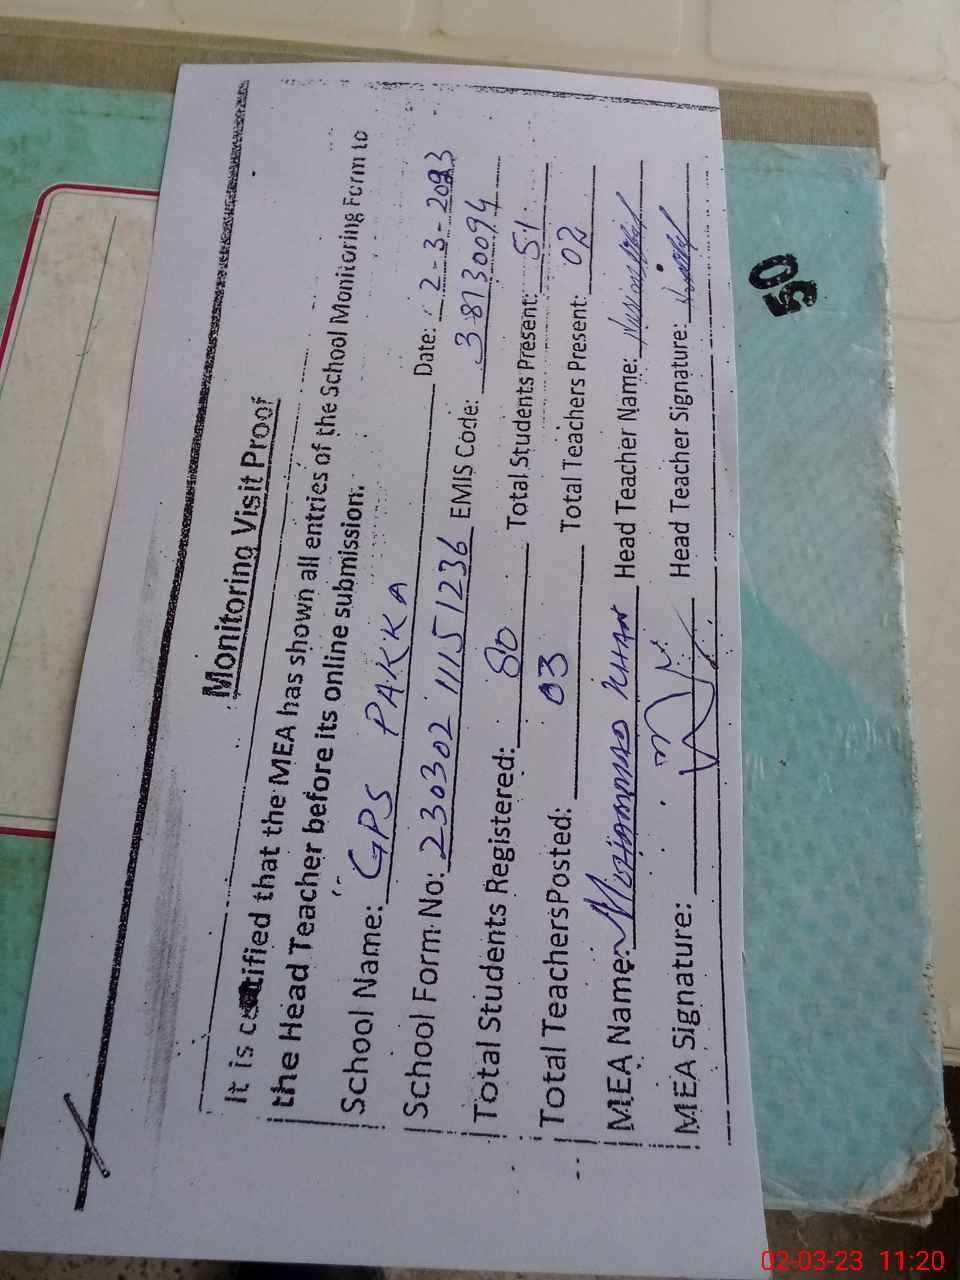 Monitoring Visit Proof
It is certified that the MEA has shown all entries of the School Monitoring Form to
the Head Teacher before its online submission.
School Name: GPS PAKKA Date: 2-3-2023
School Form No: 230302 11151236 EMIS Code: 38130094
Total Students Registered: 80 Total Students Present: 51
Total TeachersPosted: 03 Total Teachers Present: 02
MEA Name: MUHAMMAD KHAN Head Teacher Name:
MEA Signature: Head Teacher Signature:
50
02-03-23 11:20